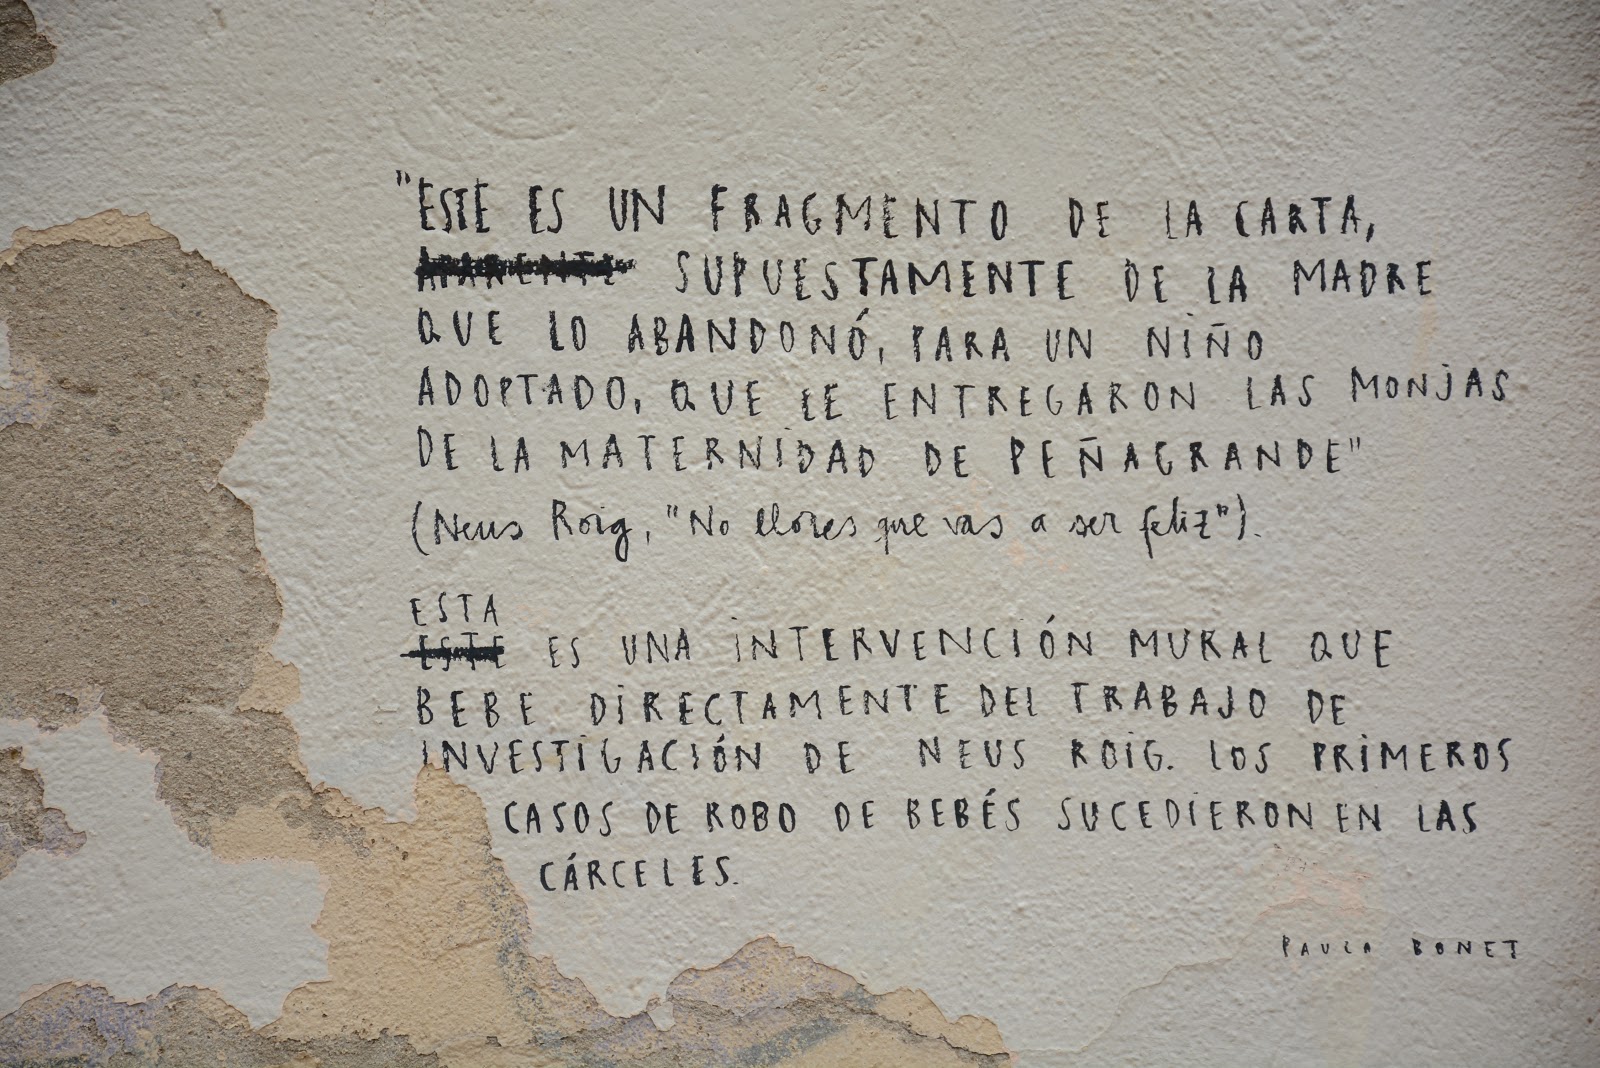 "ESTE ES UN FRAGMENTO DE LA CARTA,
SUPUESTAMENTE DE LA MADRE
QUE LO ABANDONÓ, PARA UN NIÑO
ADOPTADO, QUE LE ENTREGARON LAS MONJAS
DE LA MATERNIDAD DE PEÑAGRANDE"
(Neus Roig, "No llores que vas a ser feliz").
ESTA
ESTE ES UNA INTERVENCIÓN MURAL QUE
BEBE DIRECTAMENTE DEL TRABAJO DE
INVESTIGACIÓN DE NEUS ROIG. LOS PRIMEROS
CASOS DE ROBO DE BEBÉS SUCEDIERON EN LAS
CÁRCELES.
PAULA BONET